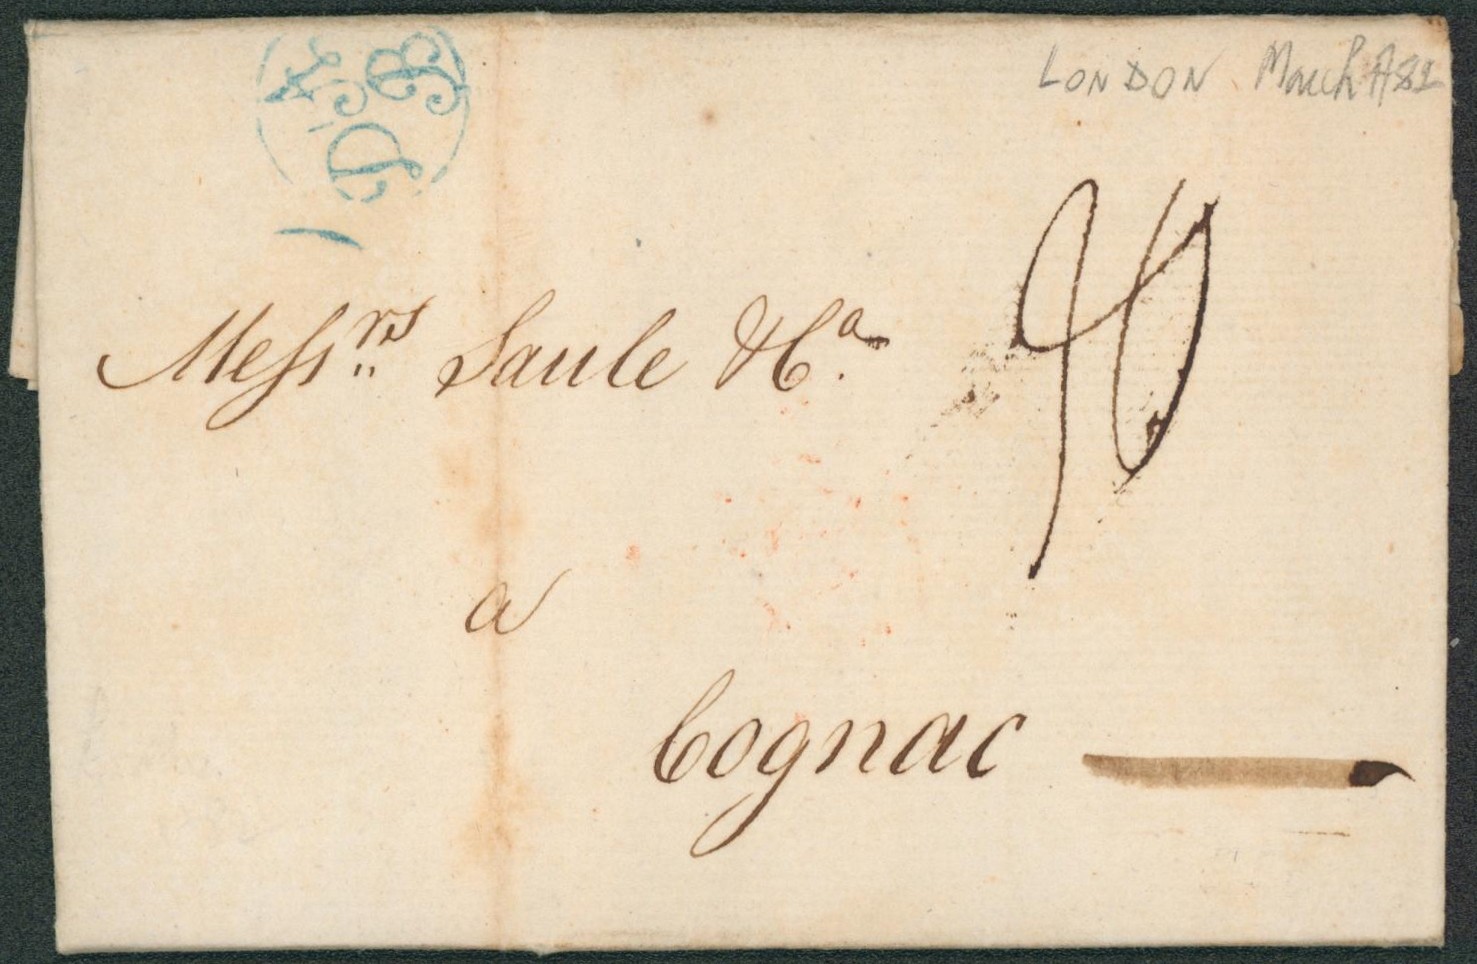 LONDON March
40
Messrs Saule & Ca.
a
Cognac